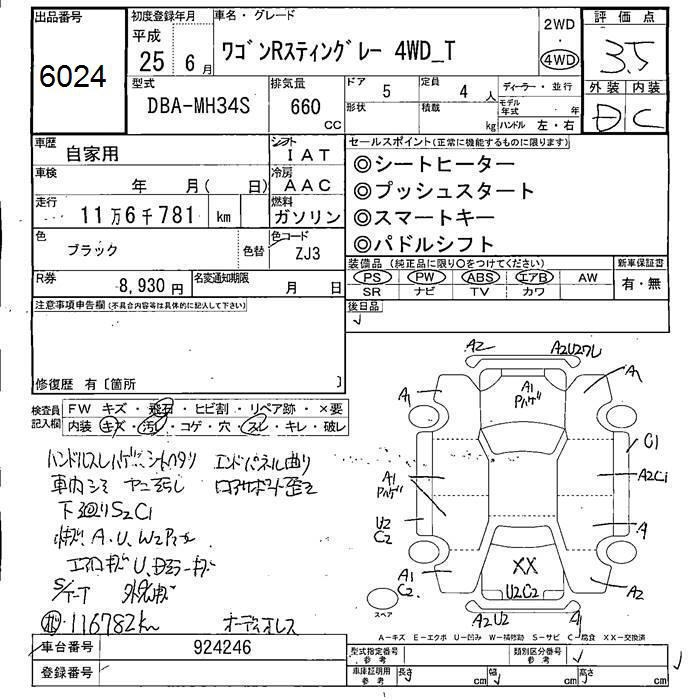 出品番号 初度登録年月 車名・グレード 2WD 評価点
6024 平成 25 6月 ワゴンRスティングレー 4WD_T ・ 4WD 3.5
型式 排気量 ドア 5 定員 4 人 ディーラー・並行 外装 内装
DBA-MH34S 660 CC 形状 積載 kg モデル年式 年 D C
ハンドル 左・右
車歴 自家用 シフト IAT セールスポイント(正常に機能するものに限ります)
車検 年 月( 日) 冷房 AAC ◎シートヒーター
走行 11万6千781 km 燃料 ガソリン ◎プッシュスタート
◎スマートキー
色 ブラック 色替 色コード ZJ3 ◎パドルシフト
装備品(純正品に限り○をつけてください) 新車保証書
R券 8,930円 名変通知期限 月 日 PS PW ABS エアB AW 有・無
SR ナビ TV カワ
注意事項申告欄(不具合内容等は具体的に記入して下さい) 後日品
修復歴 有〔箇所 〕
検査員記入欄 FW キズ・飛石・ヒビ割・リペア跡・×要
内装 キズ・汚レ・コゲ・穴・スレ・キレ・破レ
ハンドルスレハゲ、シートヘタリ エンドパネル曲り
車内シミ ヤニ汚レ ロアサポート歪ミ
下廻りS2C1
A、U、W2
S/T-T
116782km オーディオレス
A2 A2U2ワレ
A1 A1 Pハゲ A1
C1
A1 Pハゲ A2C1
U2 C2 A1
A1 C2 XX U2C2 A2
スペア A2U2 A1
A-キズ E-エクボ U-凹み W-補修跡 S-サビ C-腐食 XX-交換済
車台番号 924246 型式指定番号 参考 類別区分番号 参考
登録番号 車庫証明用 参考 長さ cm 幅 cm 高さ cm